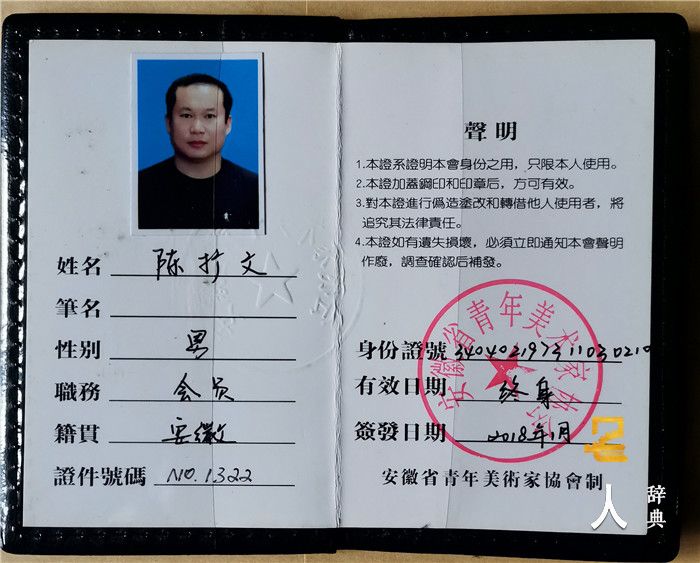 姓名 陈广文
筆名
性别 男
職務 会员
籍貫 安徽
證件號碼 NO.1322
聲明
1.本證系證明本會身份之用，只限本人使用。
2.本證加蓋鋼印和印章后，方可有效。
3.對本證進行僞造塗改和轉借他人使用者，將
追究其法律責任。
4.本證如有遺失損壞，必須立即通知本會聲明
作廢，調查確認后補發。
身份證號 340402197311030210
有效日期 终身
簽發日期 2018年1月
安徽省青年美術家協會制
安徽省青年美术家协会
人 辞典